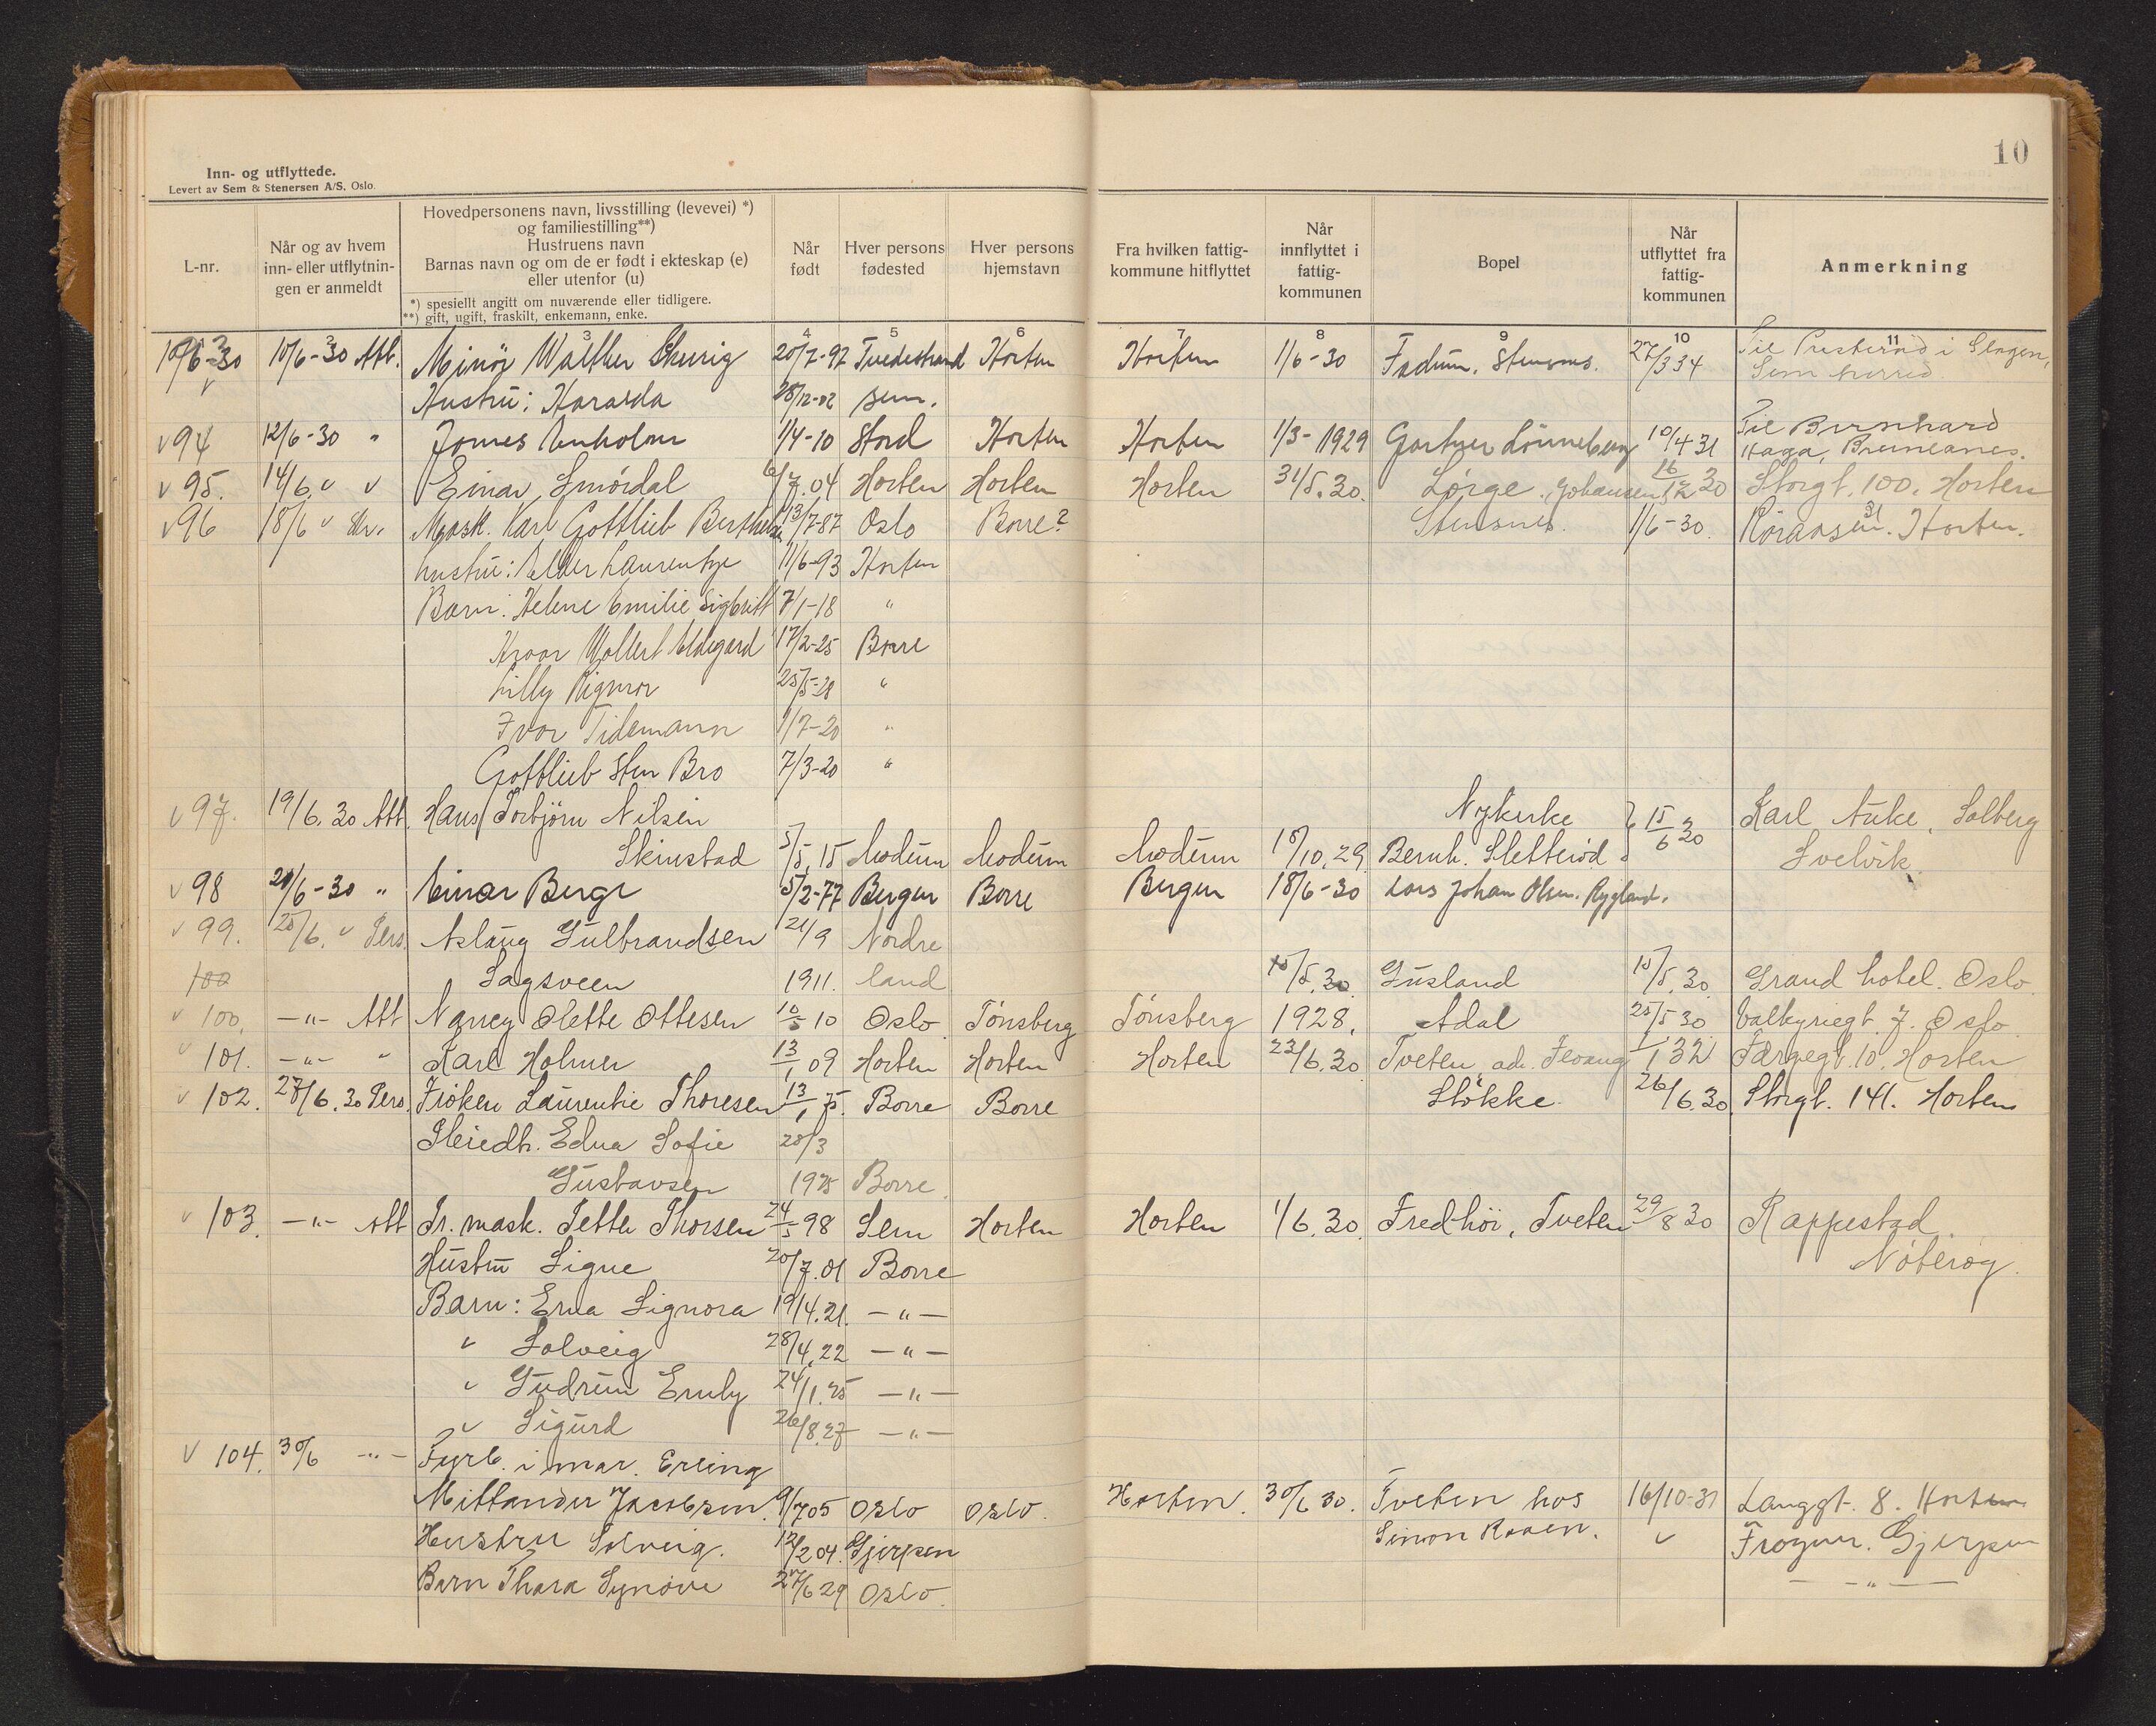 10
Inn- og utflyttede.
Levert av Sem & Stenersen A/S, Oslo.
L-nr.
Når og av hvem inn- eller utflytnin-gen er anmeldt
Hovedpersonens navn, livsstilling (levevei) *)
og familiestilling**)
Hustruens navn
Barnas navn og om de er født i ekteskap (e)
eller utenfor (u)
*) spesiellt angitt om nuværende eller tidligere.
**) gift, ugift, fraskilt, enkemann, enke.
Når født
Hver persons fødested
Hver persons hjemstavn
Fra hvilken fattig-kommune hitflyttet
Når innflyttet i fattig-kommunen
Bopel
Når utflyttet fra fattig-kommunen
Anmerkning
2 3 4 5 6 7 8 9 10 11
10/6-30 10/6-30 Att. Minör Walther 20/7-97 Tvedestrand Horten Horten 1/6-30 Fadum, Stensnes. 27/3 34 Til Presterød i Slagen,
Hustru: Haralda 28/12-02 Sem. Sem herred
v 94 12/6-30 " 1/4-10 Stord Horten Horten 1/3-1929 Gartner Lönneberg 10/4 31 Til Bernhard
Haga, Bruneanes.
v 95. 14/6. " v Einar Smørdal 6/7.04 Horten Horten Horten 31/5.30. Lørge. Johansen 16/12 30 Storgt. 100. Horten
v 96 18/6 " Skr. Mask. Karl Gottlieb Berthelsen 13/7-87 Oslo Borre? Stensnes. 1/6-30. Røråsen. 31 Horten.
hustru: Laurentze 11/6-93 Horten
Barn: Helene Emilie Sigbritt 7/1-18 "
17/2-25 Borre
Lilly Rigmor 25/5-28 "
Ivar Tidemann 1/7-20 "
Gottlieb Sten Bro 7/3-20 "
v 97. 19/6.30 Att. Hans Torbjörn Nilsen Nykirke } 15/6 30 Karl Auke, Solberg
Skinstad 5/5.15 Modum Modum Modum 18/10.29. Bernh. Sletterød Svelvik.
v 98 20/6-30 " Einar Berge 5/2-77 Bergen Borre Bergen 18/6-30 Lars Johan Olsen. Rygland.
v 99. 25/6. " Pers. Aslaug Gulbrandsen 21/9 Nordre
100 Sagsveen 1911. land 15/5.30. Gusland 15/5.30. Grand hotel. Oslo.
v 100. -"- Att Nancy Olette Ottesen 10/5 10 Oslo Tønsberg Tønsberg 1928. Adal 25/5 30 Valkyriegt. 7. Oslo.
v 101. -"- " Karl Holmer 13/1 09 Horten Horten Horten 23/6.30. Tveten, adr. 1/1 32 Færgegt. 10. Horten
v 102. 27/6.30 Pers. Frøken Laurentie Thoresen 13/1 75. Borre Borre Stokke. 26/6.30. Storgt. 141. Horten
Pleiedtr. Edna Sofie 28/3
Gustavsen 1925 Borre.
v 103. -"- Att Fr. mask. Petter Thorsen 24/5 98 Sem Horten Horten 1/6.30. Fredhöi, Tveten 29/8 30 Rappestad
Hustru Signe 20/7.01 Borre Nøterøy.
Barn: Erna Signora 19/4.21. -"-
" Solveig 28/4.22 -"-
" Gudrun Emily 24/1.25 -"-
" Sigurd 26/8.27 -"-
v 104. 30/6 -"- Fyrb. i mar. Erling
Mittander Jacobsen. 9/7 05 Oslo Oslo. Horten. 30/6 30. Tveten hos 16/10-31 Langgt. 8. Horten
Hustru Solveig. 12/2 04. Gjerpen Simon Raaen. " Frogner. Gjerpen
Barn Thora Synøve 27/6 29 Oslo. -"-